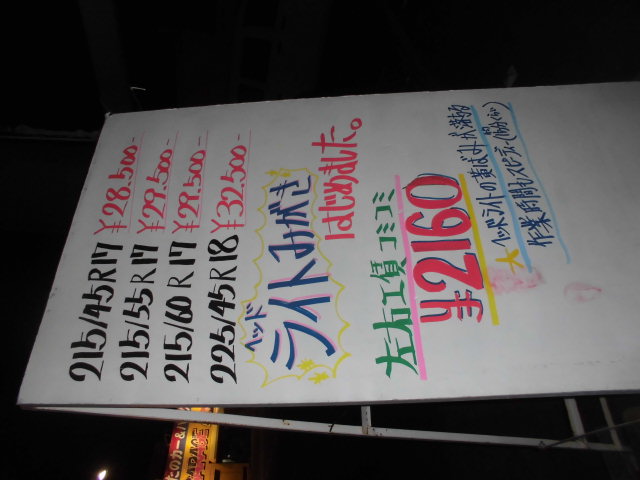 215/45R17 ¥28.500-
215/55R17 ¥29.500-
215/60R17 ¥29.500-
225/45R18 ¥32.500-
ヘッド
ライトみがき
はじめました。
左右工賃コミコミ
¥2160
★ヘッドライトの黄ばみが落ちる
作業時間もスピーディー